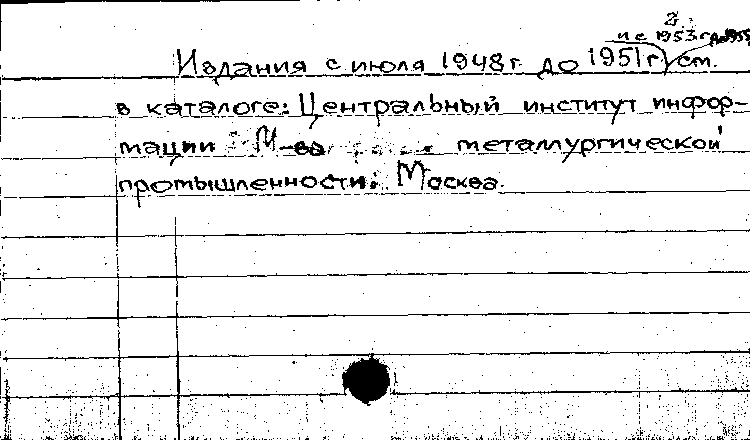 2
и с 1953 г. до 1955
Издания с июля 1948 г. до 1951 г) см.
в каталоге: Центральный институт инфор-
мации М-ва металлургической
промышленности. Москва.